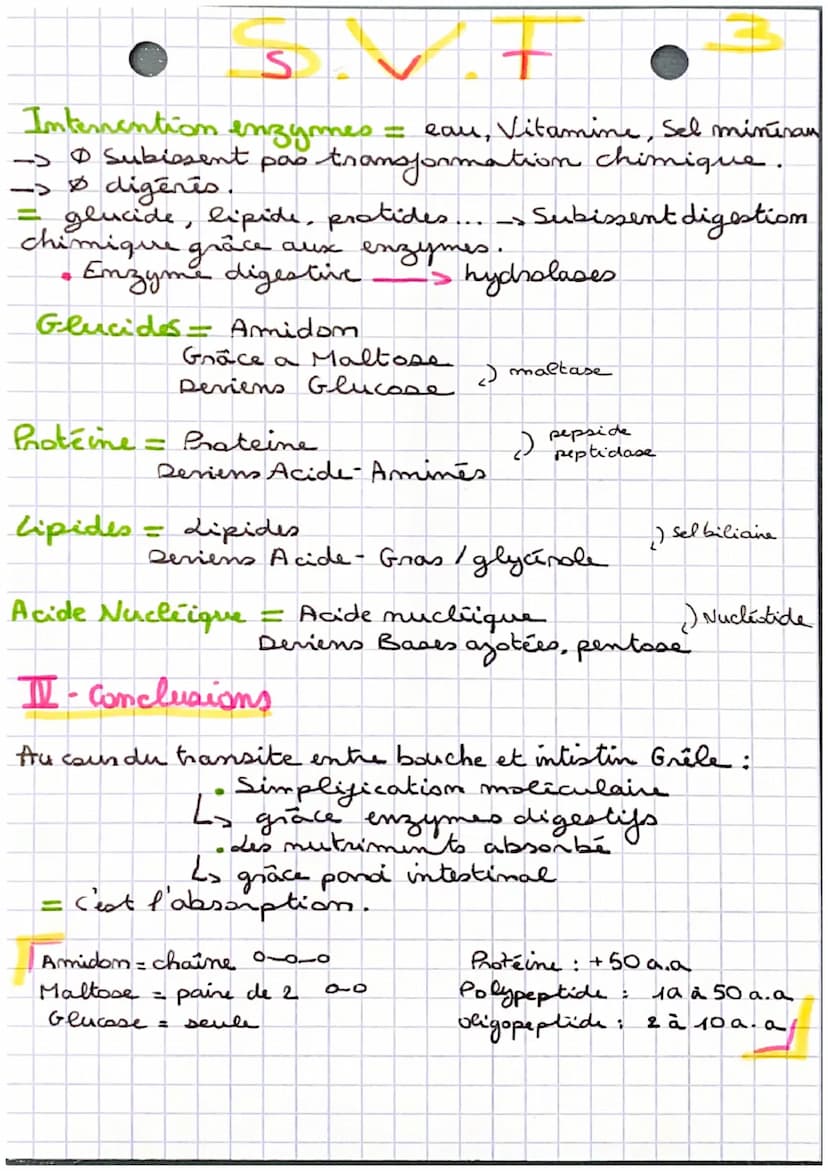 S.V.T 3
Intervention enzymes = eau, Vitamine, Sel minéraux
-> Ø Subissent pas transformation chimique.
-> Ø digérés.
= glucide, lipide, protides... -> Subissent digestion
chimique grâce aux enzymes.
• Enzyme digestive -> hydrolases
Glucides = Amidon
Grâce a Maltose
Deviens Glucose
maltase
Protéine = Proteine
Deviens Acide-Aminés
pepside
peptidase
Lipides = Lipides
Deviens Acide-Gras / glycérole
sel biliaire
Acide Nucléique = Acide nucléique
Deviens Bases azotées, pentose
Nucléotide
IV - Conclusions
Au cour du transite entre bouche et intistin Grêle :
• Simplification moléculaire
↳ grâce enzymes digestifs
• des nutriments absorbé
↳ grâce paroi intestinal
= c'est l'absorption.
Amidon = chaîne o-o-o
Maltose = paire de 2 o-o
Glucose = seule
Protéine : +50 a.a
Polypeptide : 10 à 50 a.a
oligopeptide : 2 à 10 a.a